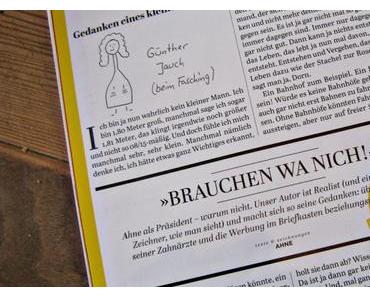 Gedanken eines klein
Günther
Jauch
(beim Fasching)
Ich bin ja nun wahrlich kein kleiner Mann. Ich
bin 1,80 Meter groß, manchmal sage ich sogar
1,81 Meter, das klingt irgendwie noch großer
und nicht so 08/15-mäßig. Und doch fühle ich mich
manchmal sehr, sehr klein. Manchmal nämlich
denke ich, ich hätte etwas ganz Wichtiges erkannt.
ken und nicht mehr
gegen sein. Es ist ja gar nicht mal so
immer dagegen sind. Immer nur dagegen
gar nicht gut. Dann kann ja nichts davon
das Leben, dass man mitunter dafür
entsteht. Entstehen und Vergehen, das
Leben dazu wie der Stachel zur Ros
sagt man ja, Dorn.
Ein Bahnhof zum Beispiel. Ein
sein! Würde es keine Bahnhöfe ge
auch gar nicht erst Bahnen zu fahr
sen. Ohne Bahnhöfe könnten Fah
aussteigen, aber nur auf freier
»BRAUCHEN WA NICH!
Ahne als Präsident – warum nicht. Unser Autor ist Realist (und ein
Zeichner, wie man sieht) und macht sich so seine Gedanken: üb
seiner Zahnärzte und die Werbung im Briefkasten beziehungs
texte & zeichnungen
AHNE
en könnte, ein
holt sie dann ab? Wiss
Da ist ja dann gar kei